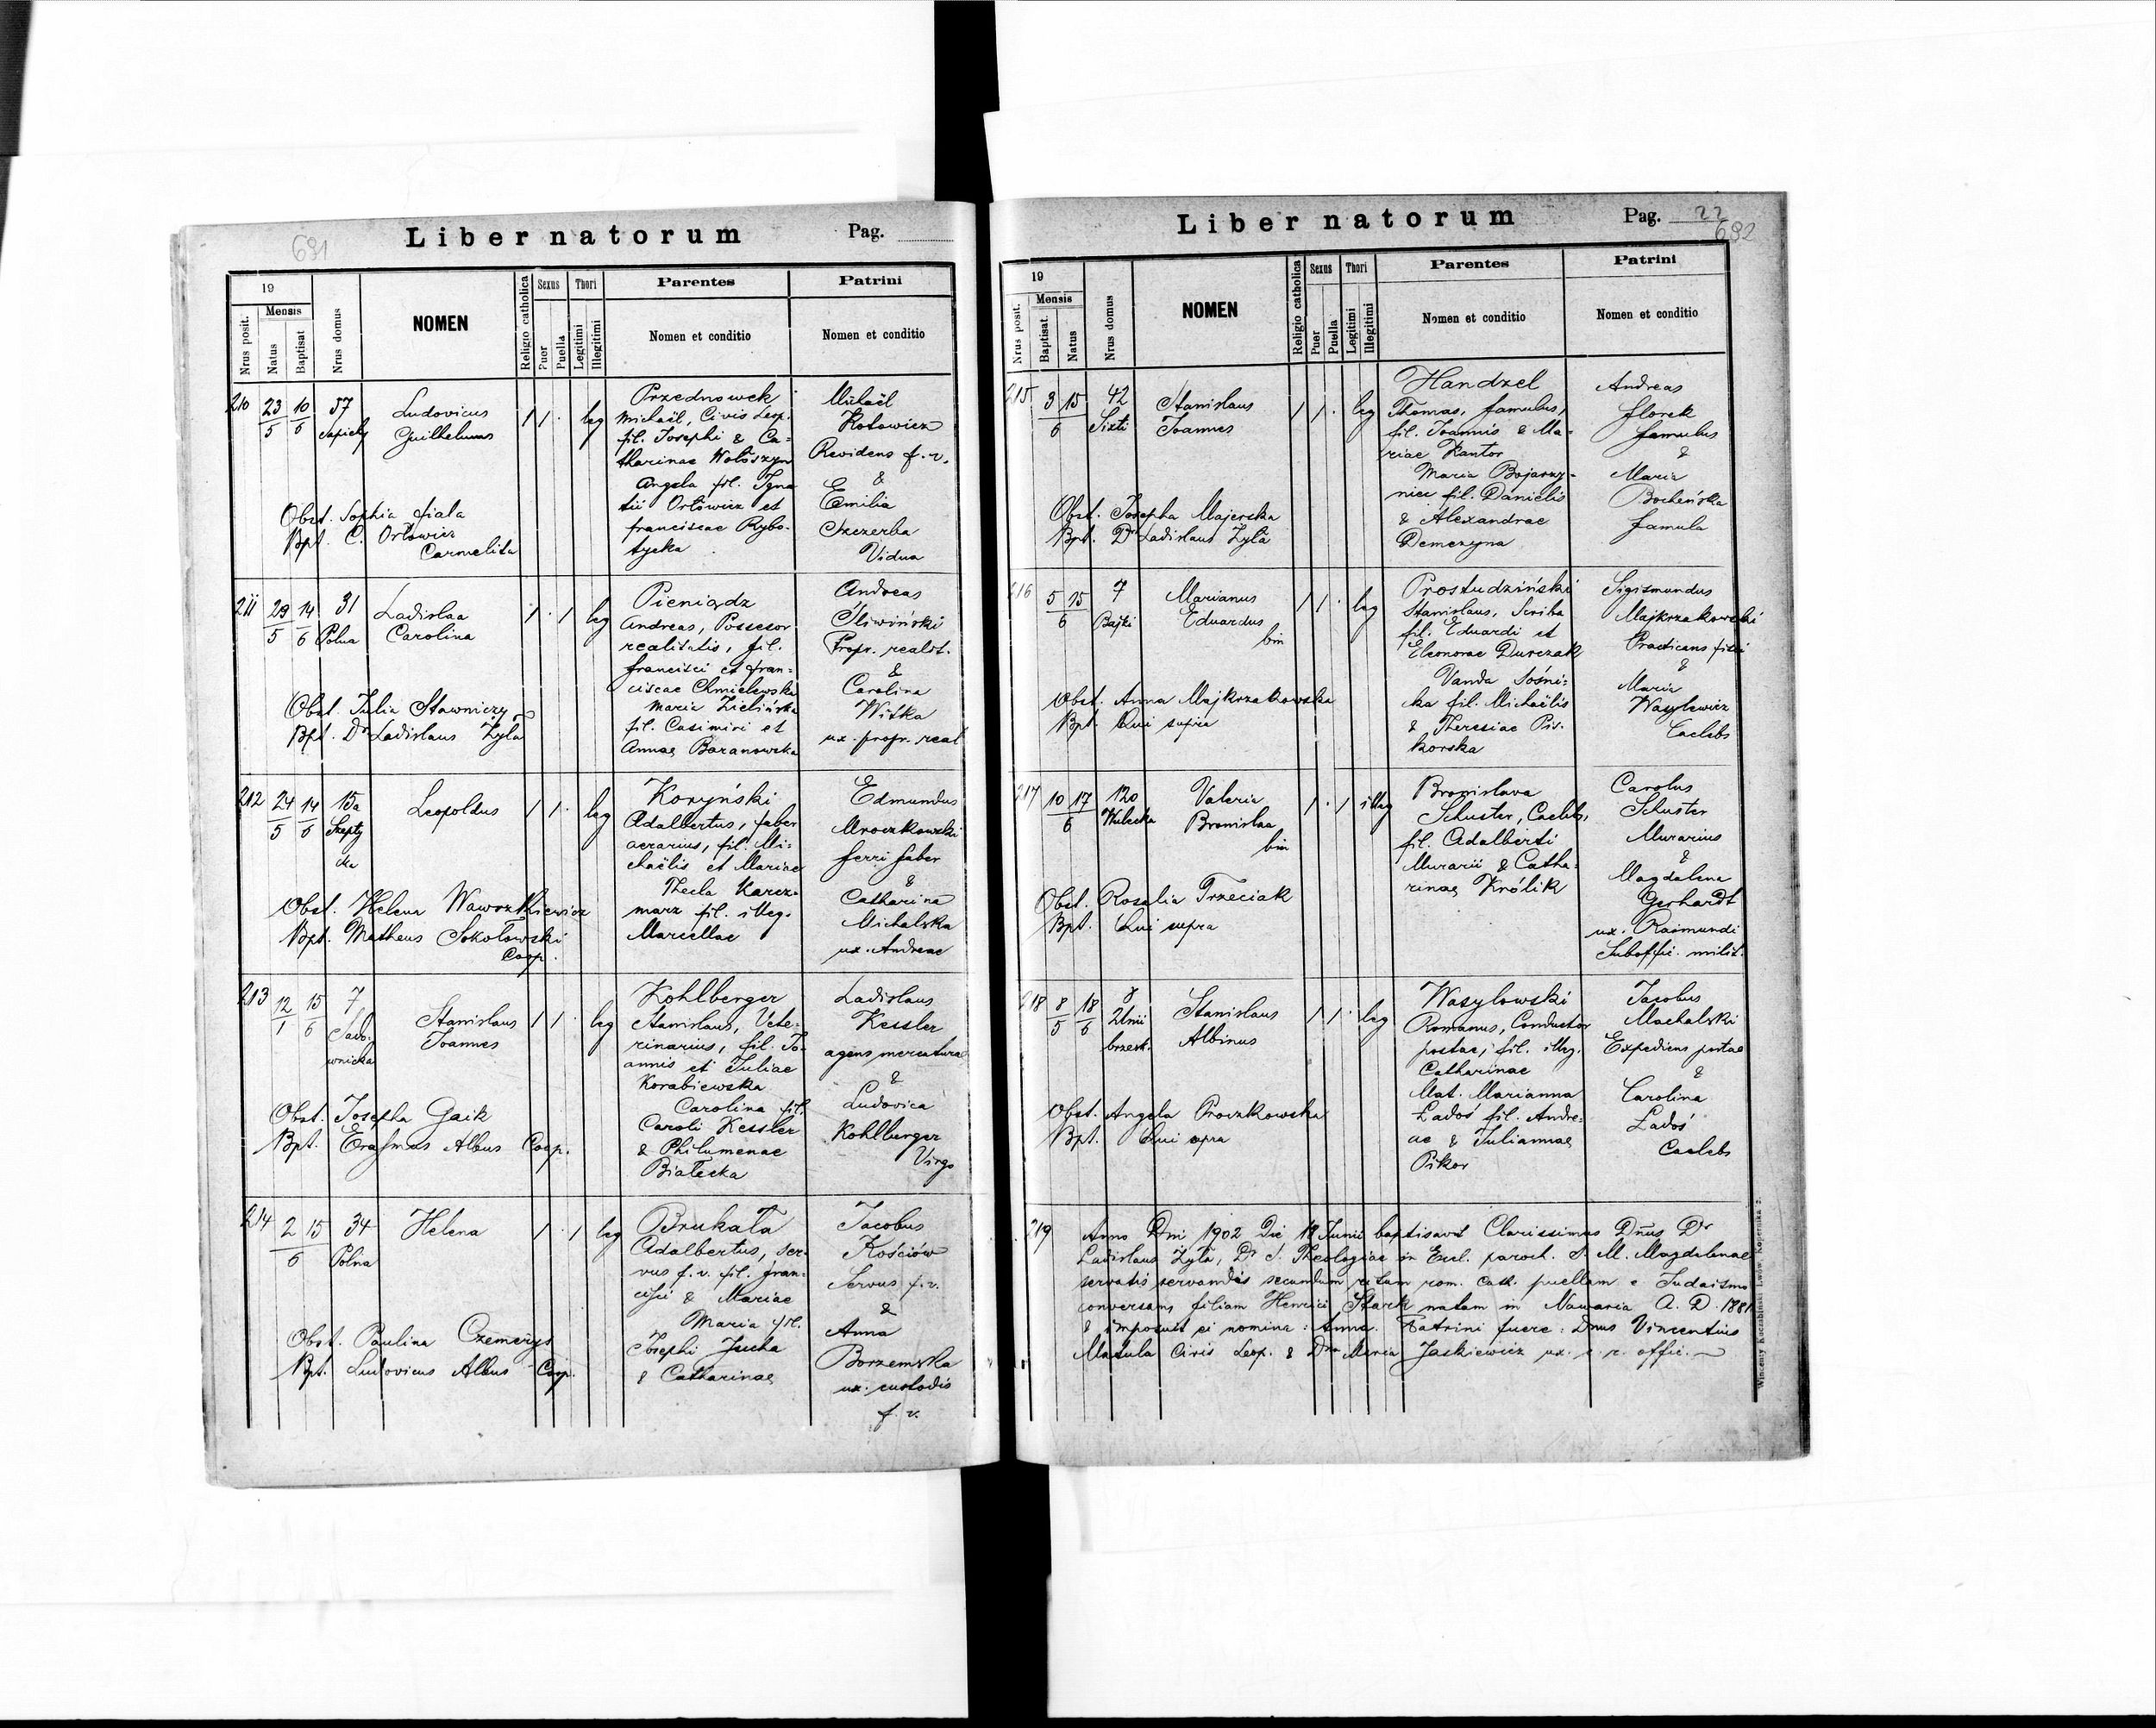 691
Liber natorum
Pag.
19
Mensis
Nrus posit.
Natus
Baptisat
Nrus domus
NOMEN
Religio catholica
Sexus
Puer
Puella
Thori
Legitimi
Illegitimi
Parentes
Nomen et conditio
Patrini
Nomen et conditio
210 23/5 10/6 57 Sapiehy
Ludovicus
Guilhelmus
1 1 · leg
Przednowek
Michaël, Civis Leop.
fil. Josephi & Ca=
tharinae Wołoszyn
Angela fil. Igna
tii Orłowicz et
franciscae Rybo-
tycka
Michaël
Kotowicz
Revidens f. v.
&
Emilia
Szczerba
Vidua
Obst. Sophia fiala
Bpt. C. Orłowicz
Carmelita
211 29/5 14/6 31 Polna
Ladislaa
Carolina
1 · 1 leg
Pieniądz
Andreas, Possesor
realitatis, fil.
francisci et fran=
ciscae Chmielewska
Maria Zielińska
fil. Casimiri et
Annae Baranowska
Andreas
Śliwiński
Propr. realit.
&
Carolina
Witka
ux. propr. real
Obst. Julia Stawniczy
Bpt. Dr Ladislaus Zyła
212 24/5 14/6 15a Szepty
cka
Leopoldus
1 1 · leg
Kozyński
Adalbertus, faber
aerarius, fil. Mi-
chaëlis et Mariae
Thecla Karcz-
marz fil. illeg.
Marcellae
Edmundus
Mroczkowski
ferri faber
&
Catharina
Michalska
ux. Andreae
Obst. Helena Wawrzkiewicz
Bpt. Matheus Sokołowski
Coop.
213 12/1 15/6 7 Sado-
wnicka
Stanislaus
Joannes
1 1 · leg
Kohlberger
Stanislaus, Vete-
rinarius, fil. Jo-
annis et Juliae
Korabiewska
Carolina fil.
Caroli Kessler
& Philumenae
Białecka
Ladislaus
Kessler
agens mercaturae
&
Ludovica
Kohlberger
Virgo
Obst. Josepha Gaik
Bpt. Erasmus Albus Coop.
214 2 15/6 34 Polna
Helena
1 · 1 leg
Brukała
Adalbertus, ser-
vus f. v. fil. fran-
cisci & Mariae
Maria fil.
Josephi Jucha
& Catharinae
Jacobus
Kościów
Servus f. v.
&
Anna
Borzemska
ux. custodis
f. v.
Obst. Paulina Czemerys
Bpt. Ludovicus Albus Coop.
Liber natorum
Pag. 22
692
19
Mensis
Nrus posit.
Baptisat.
Natus
Nrus domus
NOMEN
Religio catholica
Sexus
Puer
Puella
Thori
Legitimi
Illegitimi
Parentes
Nomen et conditio
Patrini
Nomen et conditio
215 3 15/6 42 Sixti
Stanislaus
Joannes
1 1 · leg
Handzel
Thomas, famulus,
fil. Joannis & Ma-
riae Kantor
Maria Bojarzy-
nici fil. Danielis
& Alexandrae
Demczyna
Andreas
florek
famulus
&
Maria
Bocheńska
famula
Obst. Josepha Majerska
Bpt. Dr Ladislaus Zyła
216 5 15/6 7 Bajki
Marianus
Eduardus
bin
1 1 · leg
Prostudziński
Stanislaus, Scriba
fil. Eduardi et
Eleonorae Durczak
Vanda Sośni-
cka fil. Michaëlis
& Theresiae Pis-
korska
Sigismundus
Majkrzakowski
Practicans fisci
&
Maria
Wasylewicz
Caelebs
Obst. Anna Majkrzakowska
Bpt. Qui supra
217 10 17/6 120 Wulecka
Valeria
Bronislaa
bin
1 · 1 illeg
Bronislava
Schuster, Caelebs,
fil. Adalberti
Murarii & Catha-
rinae Królik
Carolus
Schuster
Murarius
&
Magdalena
Gerhardt
ux. Raimundi
Suboffic. milit.
Obst. Rosalia Trzeciak
Bpt. Qui supra
218 8/5 18/6 8 Unii
brzesk.
Stanislaus
Albinus
1 1 · leg
Wasylowski
Romanus, Conductor
postae, fil. illeg.
Catharinae
Mat. Marianna
Ładoś fil. Andre-
ae & Juliannae
Pikor
Jacobus
Machalski
Expediens postae
&
Carolina
Ładoś
Caelebs
Obst. Angela Proczkowska
Bpt. Qui supra
219 Anno Dni 1902 Die 18 Junii baptisavit Clarissimus Dñus Dr
Ladislaus Zyła, Dr S. Theologiae in Eccl. paroch. S. M. Magdalenae
servatis servandis secundum ritum rom. cath. puellam e Judaismo
conversam filiam Henrici Stark natam in Nawaria A. D. 1881
& imposuit ei nomina: Anna. Patrini fuere: Dnus Vincentius
Mazula Civis Leop. & Dna Maria Jaskiewicz ux. c. r. offic.
Wincenty Kuczabiński Lwów, Kopernika 2.